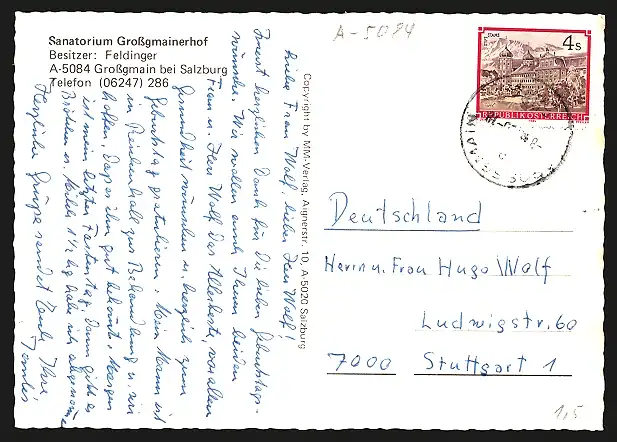 Sanatorium Großgmainerhof
Besitzer: Feldinger
A-5084 Großgmain bei Salzburg
Telefon (06247) 286
A-5084
STIFT STAMS
4 S
REPUBLIK ÖSTERREICH
Copyright by MM-Verlag, Aignerstr. 10, A-5020 Salzburg
Liebe Frau Wolf, lieber Herr Wolf!
Zuerst herzlichen Dank für Die lieben Geburtstags-
wünsche. Wir wollen auch Ihnen beiden
Frau u. Herr Wolf das Allerbeste, vor allem
Gesundheit wünschen u. herzlich zum
Geburtstag gratulieren. Mein Mann ist
in Reichenhall zur Behandlung u. wir
hoffen, dass es ihm gut bekommt. Morgen
ist mein letzter Fastentag. Dann gibt es
Brötchen u. Milch. 1½ kg habe ich abgenommen
Herzliche Grüße sendet Euch Ihre
Deutschland
Herrn u. Frau Hugo Wolf
Ludwigstr. 60
7000 Stuttgart 1
1,5